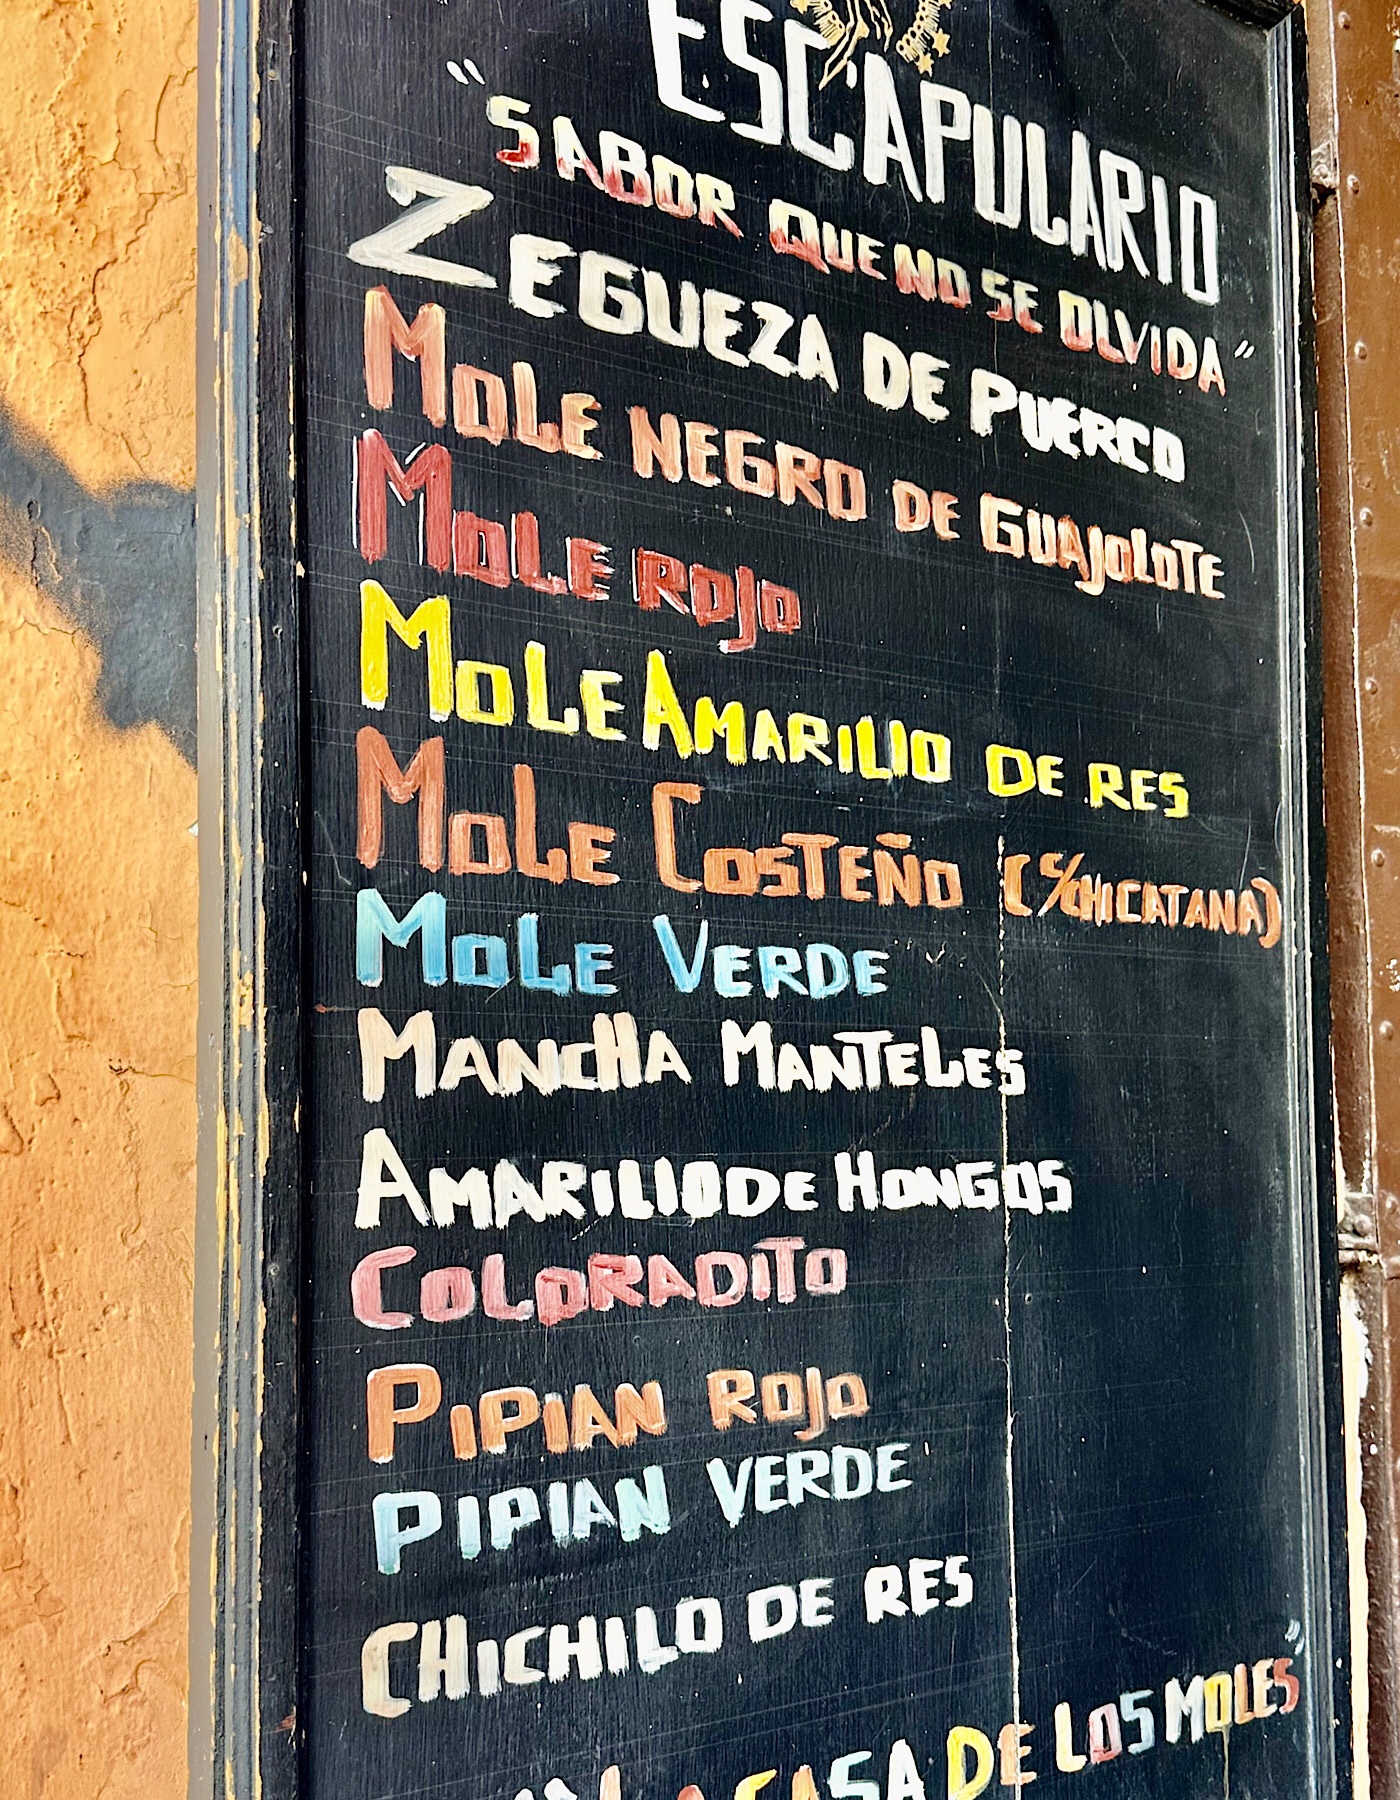 ESCAPULARIO
"SABOR QUE NO SE OLVIDA"
ZEGUEZA DE PUERCO
MOLE NEGRO DE GUAJOLOTE
MOLE ROJO
MOLE AMARILLO DE RES
MOLE COSTEÑO (S/CHICATANA)
MOLE VERDE
MANCHA MANTELES
AMARILLO DE HONGOS
COLORADITO
PIPIAN ROJO
PIPIAN VERDE
CHICHILO DE RES
"LA CASA DE LOS MOLES"